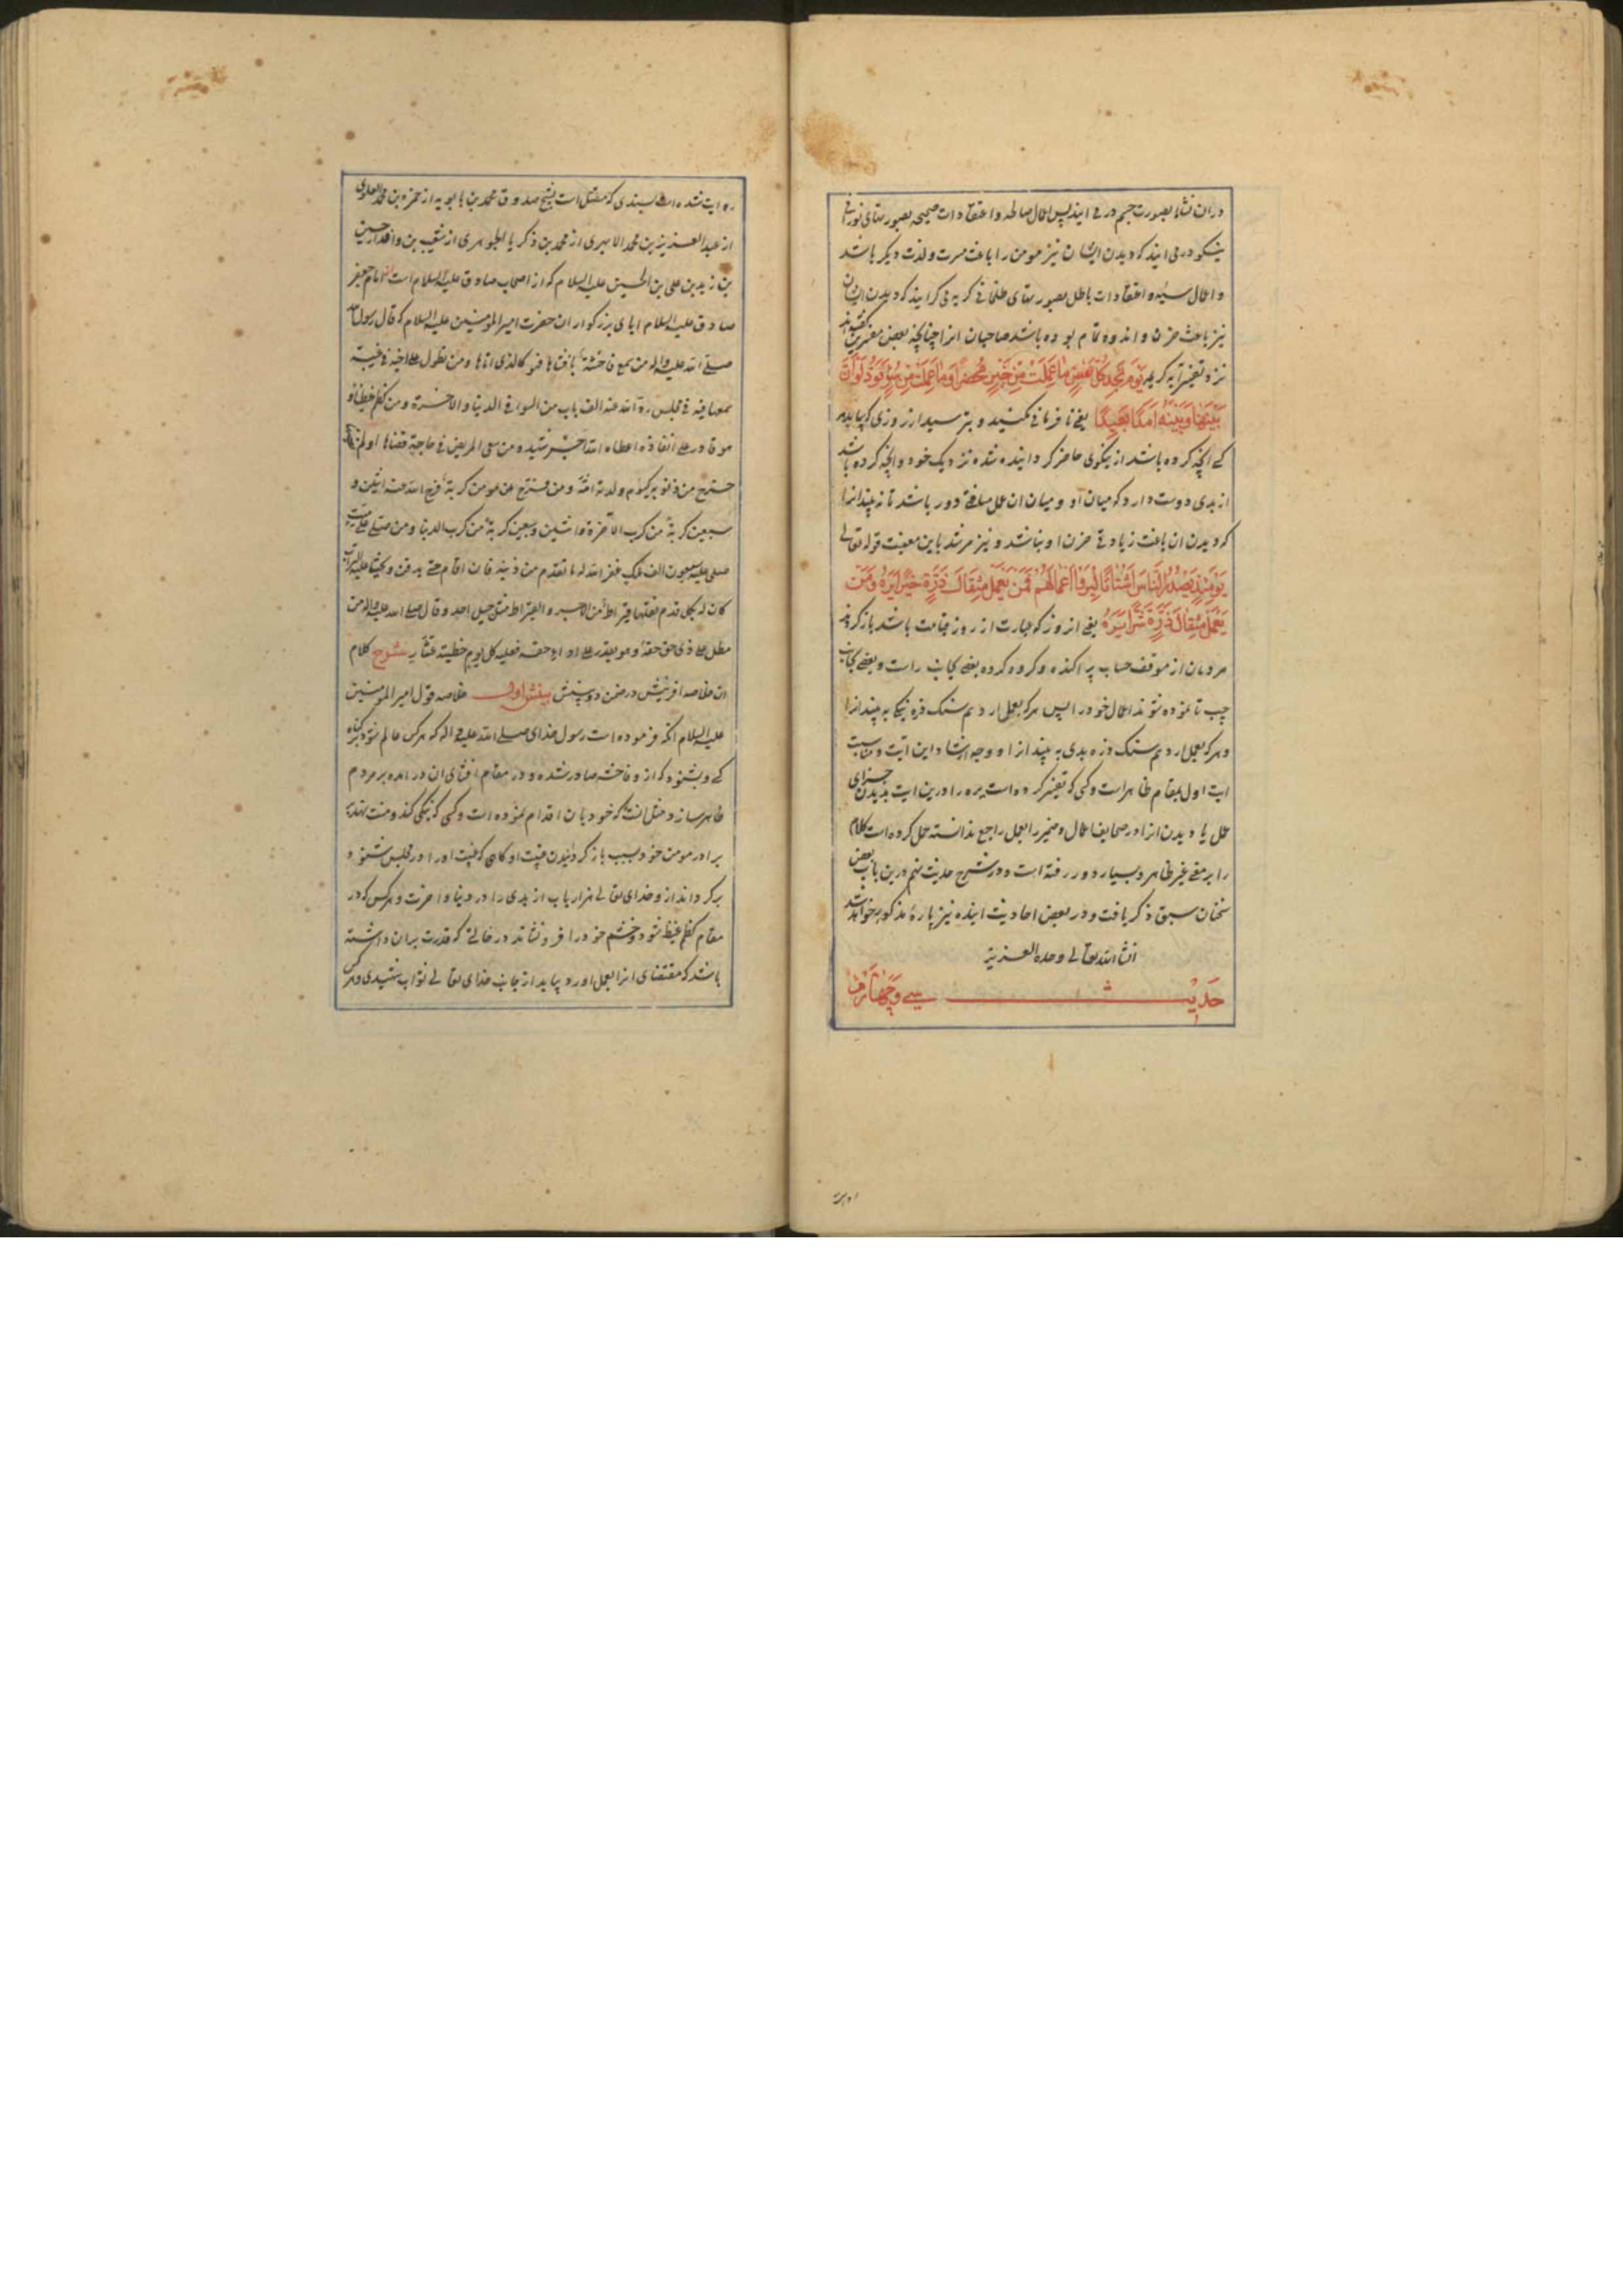 دران نشاء بصورت جسم در می ایند پس اعمال صالحه و اعتقادات صحیحه بصورتهای نورانی
نیکو در می ایند که دیدن ایشان نیز مومن را باعث مسرت و لذت دیکر باشد
و اعمال سیئه و اعتقادات باطل بصورتهای ظلمانی کریه می کرایند که دیدن ایشان
نیز باعث حزن و اندوه تمام بوده باشد صاحبان انرا چنانچه بعض مفسرین کفته اند
نزد تفسیر آیه کریمه یَوْمَ تَجِدُ كُلُّ نَفْسٍ مَا عَمِلَتْ مِنْ خَيْرٍ مُحْضَرًا وَمَا عَمِلَتْ مِنْ سُوءٍ تَوَدُّ لَوْ أَنَّ
بَيْنَهَا وَبَيْنَهُ أَمَدًا بَعِيدًا یعنی نافرمانی مکنید و بترسید از روزی که بیابد هر
کسی انچه کرده باشد از نیکوی حاضر کردانیده شده نزدیک خود و انچه کرده باشد
از بدی دوست دارد که میان او و میان ان عمل مسافتی دور باشد تا نه بیند انرا
که دیدن ان باعث زیادتی حزن او نباشد و نیز مرشد باین معنیست قوله تعالی
يَوْمَئِذٍ يَصْدُرُ النَّاسُ أَشْتَاتًا لِيُرَوْا أَعْمَالَهُمْ فَمَنْ يَعْمَلْ مِثْقَالَ ذَرَّةٍ خَيْرًا يَرَهُ وَمَنْ
يَعْمَلْ مِثْقَالَ ذَرَّةٍ شَرًّا يَرَهُ یعنی انروز که عبارت از روز قیامت باشد باز کردند
مردمان از موقف حساب پراکنده و کروه کروه بعضی بجانب راست و بعضی بجانب
چپ تا نموده شوند اعمال خود را پس هر که بعمل ارد هم سنک ذره نیکی به بیند انرا
و هر که بعمل ارد هم سنک ذره بدی به بیند انرا و وجه استشهاد این آیت و مناسبت
ایت اول بمقام ظاهر است و کسی که تفسیر کرده است یره را درین ایت بدیدن جزای
عمل یا دیدن انرا در صحایف اعمال و ضمیر را بعمل راجع ندانسته حمل کرده است کلام
را بر معنی غیر ظاهر و بسیار دور رفته است و در شرح حدیث نهم درین باب بعض
سخنان سبق ذکر یافت و در بعض احادیث اینده نیز پارهٔ مذکور خواهد شد
انشاء الله تعالی وحده العزیز
حدیث سی و چهارم
روایت شده است بسندی که متصل است بشیخ صدوق محمد بن بابویه از حمزه بن محمد العلوی
از عبد العزیز بن محمد الابهری از محمد بن زکریا الجوهری از شعیب بن واقد از حسین
بن زید بن علی بن الحسین علیه السلام که از اصحاب صادق علیه السلام است از امام جعفر
صادق علیه السلام از ابای بزرکوار ان حضرت امیر المومنین علیه السلام که قال رسول الله
صلی الله علیه واله من سمع فاحشة فافشاها فهو کالذی اتاها ومن تطول علی اخیه فی غیبة
سمعها فیه فی مجلس رد الله عنه الف باب من السوء فی الدنیا والاخرة ومن کظم غیظا و
هو قادر علی انفاذه اعطاه الله اجر شهید ومن سعی لمریض فی حاجة قضاها او لم یقضها
خرج من ذنوبه کیوم ولدته امه ومن فرج عن مومن کربة فرج الله عنه اثنین و
سبعین کربة من کرب الآخرة واثنین وسبعین کربة من کرب الدنیا ومن صلی علی میت
صلی علیه سبعون الف ملک غفر الله له ما تقدم من ذنبه فان اقام حتی یدفن ویحثی علیه التراب
کان له بکل قدم نقلها قیراط من الاجر والقیراط مثل جبل احد وقال صلی الله علیه واله من
مطل علی ذی حق حقه وهو یقدر علی اداء حقه فعلیه کل یوم خطیئة عشار شرح کلام
ان خلاصه افرینش در ضمن دو بینش بینش اول خلاصه قول امیر المومنین
علیه السلام انکه فرموده است رسول خدای صلی الله علیه واله که هر کس عالم شود بکناه
کسی و بشنود که از و فاحشه صادر شده و در مقام افشای ان در امده بر مردم
ظاهر سازد مثل انست که خود بان اقدام نموده است و کسی که نیکی کند و منت نهد بر
برادر مومن خود بسبب باز کردانیدن غیبت او کاهی که غیبت او را در مجلس شنود و
بر کرداند از و خدای تعالی هزار باب از بدی را در دنیا و اخرت و هر کس که در
مقام کظم غیظ شود و خشم خود را فرو نشاند در حالتی که قدرت بران داشته
باشد که مقتضای انرا بعمل اورد بیابد از جانب خدای تعالی ثواب شهیدی و هر کس